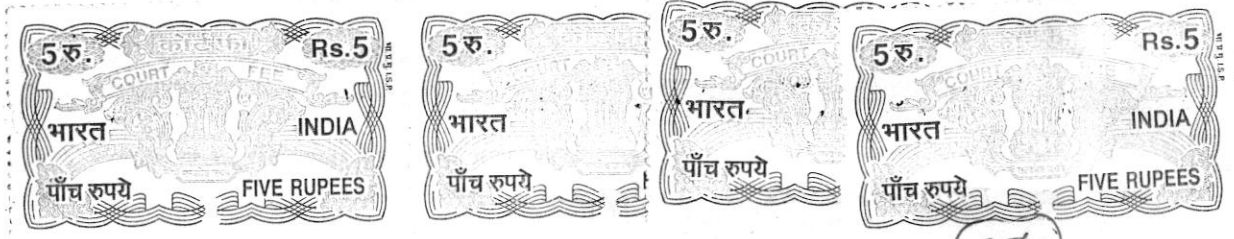 5 रु. कोर्ट फी Rs.5
COURT FEE
भारत INDIA
पाँच रुपये FIVE RUPEES
भा.प्र.मु. ISP
5 रु.
COURT
भारत
पाँच रुपये
5 रु.
COURT
भारत
पाँच रुपये
5 रु. Rs.5
COURT
भारत INDIA
पाँच रुपये FIVE RUPEES